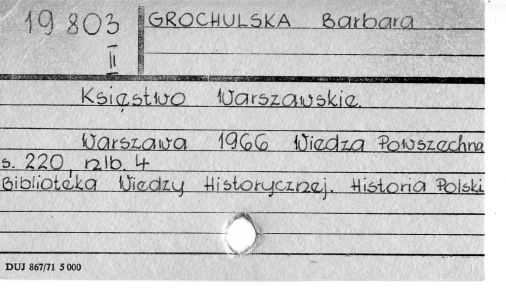 19 803 GROCHULSKA Barbara
II
Księstwo Warszawskie.
Warszawa 1966 Wiedza Powszechna
s. 220 nlb. 4
Biblioteka Wiedzy Historycznej. Historia Polski
DUJ 867/71 5 000